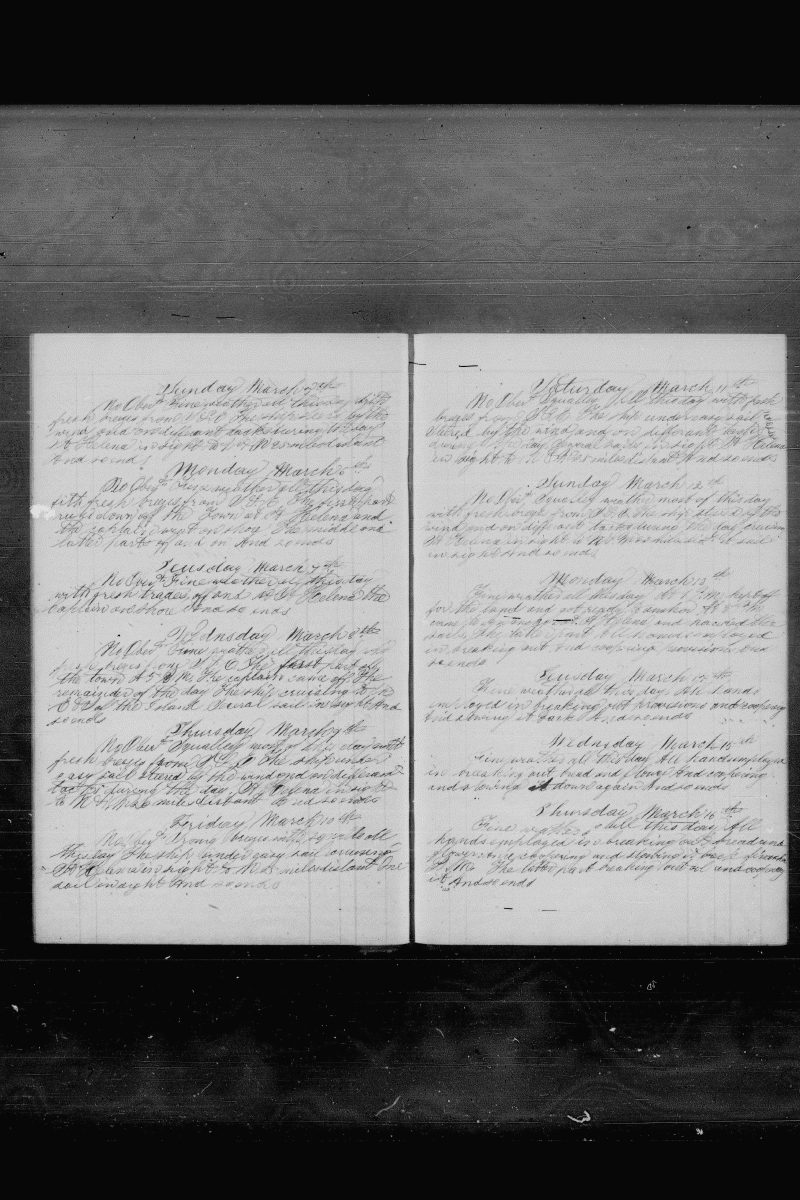 Sunday March 5th
No Obsv Fine weather all this day with
fresh breezes from S.E. The ship steered by the
wind and on different tacks during the day
St Helena in sight miles distant
And so ends
Monday March 6th
No Obsv Fine weather all this day
with fresh breezes from S.E. The first part
run down off the Town at St Helena and
the captain went on shore The middle and
latter part off and on And so ends
Tuesday March 7th
No Obsv Fine weather all this day
with fresh trades off and on St Helena the
captain on shore And so ends
Wednsday March 8th
No Obsv Fine weather all this day with
fresh breezes from S.E. The first part off
the town At 5 P.M. the captain came off The
remainder of the day the ship cruising to the
of the Island Several sail in sight And
so ends
Thursday March 9th
No Obsv Squalley most of this day with
fresh breezes from S.E. The ship under
easy sail steered by the wind and on different
tacks during the day St Helena in sight
to miles distant And so ends
Friday March 10th
No Obsv Strong breezes with squalls all
this day The ship under easy sail cruising
St Helena in sight to miles distant One
sail in sight And so ends
Saturday March 11th
No Obsv Squalley all this day with fresh
breezes from S.E. The ship under easy sail
steered by the wind and on different tacks
during the day Several sails in sight St Helena
in sight to miles distant And so ends
Sunday March 12th
No Obsv Squalley weather most of this day
with fresh breeze from S.E. The ship steered by the
wind and on different tacks during the day cruising
St Helena in sight to miles dist sail
in sight And so ends
Monday March 13th
Fine weather all this day At P.M. kept off
for the land and got ready to anchor At
came to anchor at St Helena and handed the
sails The latter part all hands employed
in breaking out and coopering provisions And
so ends
Tuesday March 14th
Fine weather all this day All hands
employed in breaking out provisions and coopering
and stowing it back And so ends
Wednsday March 15th
Fine weather all this day All hands employed
in breaking out bread and flour and coopering
and stowing it down again And so ends
Thursday March 16th
Fine weather all this day All
hands employed in breaking out bread and
flour and coopering and stowing it back
P.M. The latter part breaking out oil and coopering
it And so ends